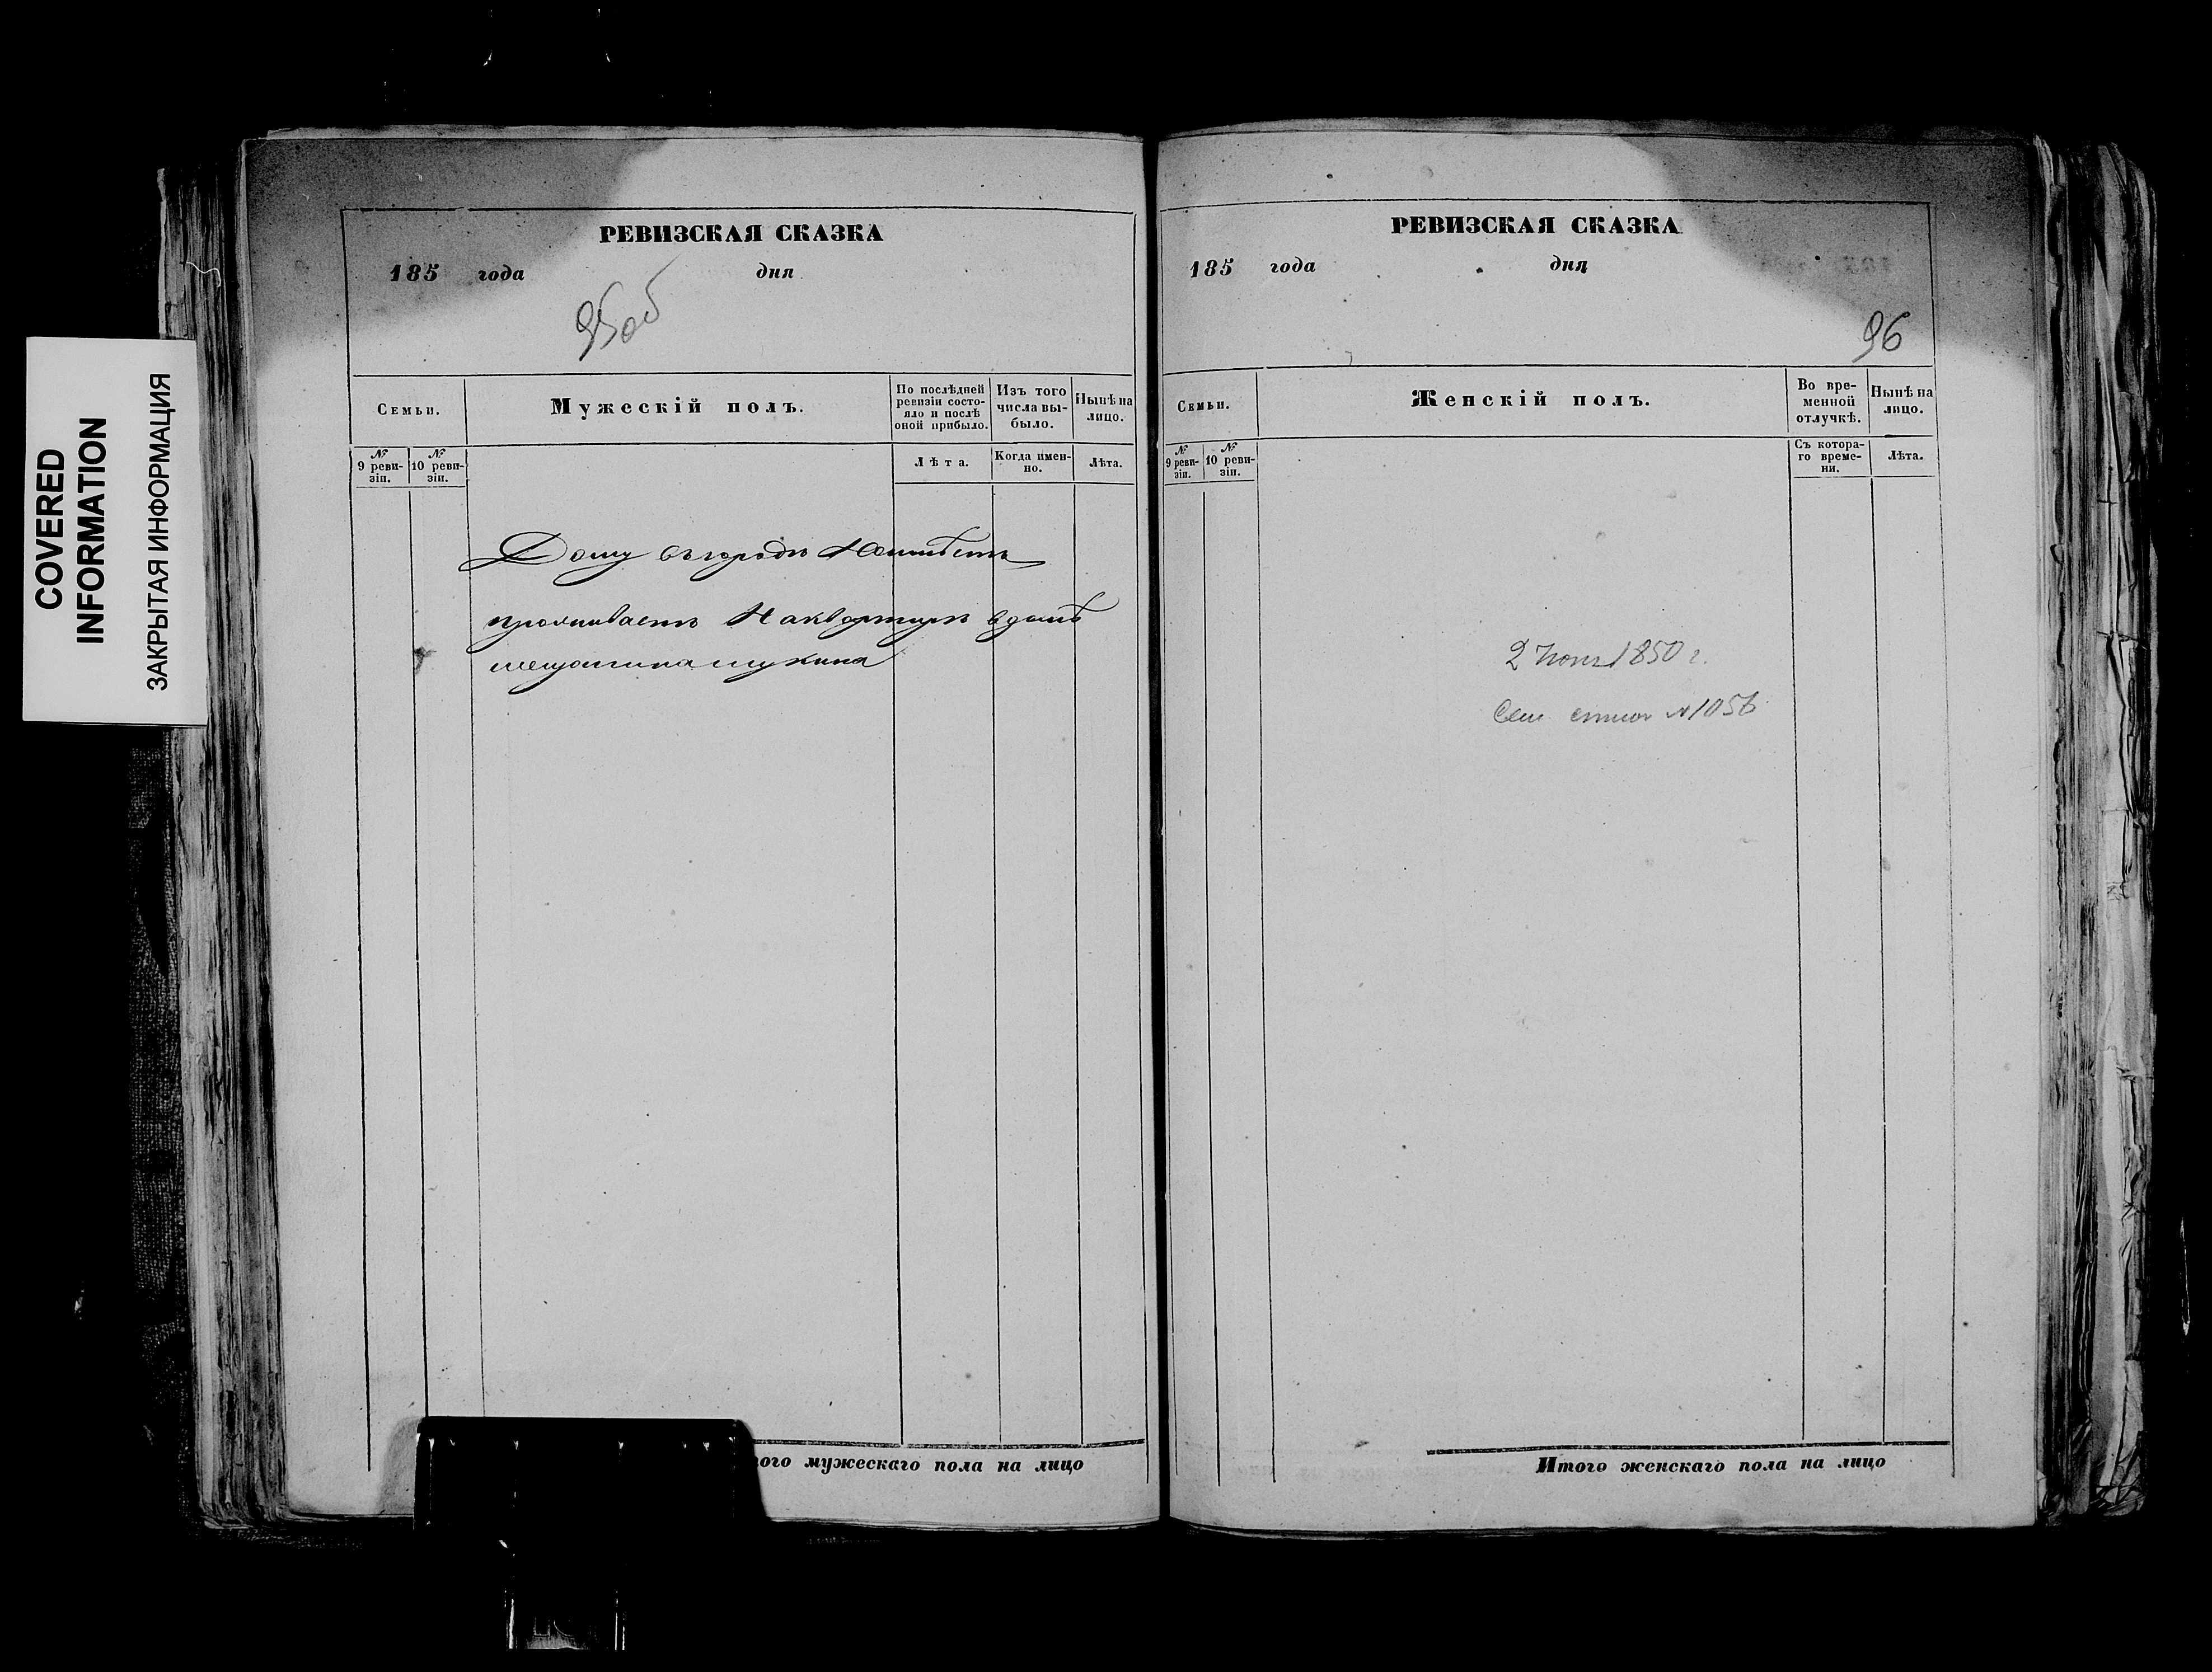 COVERED
INFORMATION
ЗАКРЫТАЯ ИНФОРМАЦИЯ
РЕВИЗСКАЯ СКАЗКА
185 года дня
95об
Семьи.
Мужескій полъ.
По послѣдней
ревизіи состо-
яло и послѣ
оной прибыло.
Изъ того
числа вы-
было.
Нынѣ на
лицо.
№
9 реви-
зіи.
№
10 реви-
зіи.
Лѣта.
Когда имен-
но.
Лѣта.
Дому въ городѣ Неимѣетъ
проживаетъ На квартирѣ в домѣ
мещанина щукина
ого мужескаго пола на лицо
РЕВИЗСКАЯ СКАЗКА
185 года дня
96
Семьи.
Женскій полъ.
Во вре-
менной
отлучкѣ.
Нынѣ на
лицо.
№
9 реви-
зіи.
№
10 реви-
зіи.
Съ котора-
го време-
ни.
Лѣта.
2 1850 г.
№1056
Итого женскаго пола на лицо